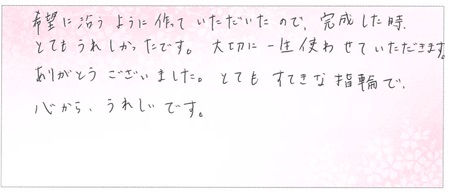 希望に沿うように作っていただいたので、完成した時、
とてもうれしかったです。大切に一生使わせていただきます。
ありがとうございました。とてもすてきな指輪で、
心から、うれしいです。